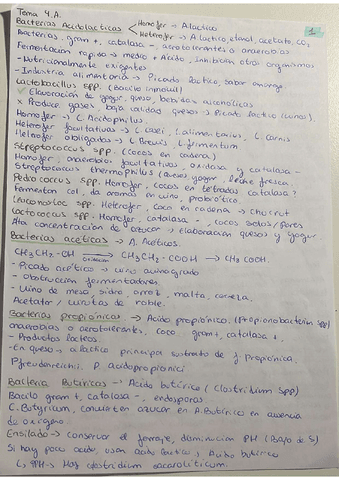 Tema 4.A.
1
Bacterias Acidolacticas Homofer → A.lactico
Heterofer → A.lactico, etanol, acetato, CO2
Bacterias, gram +, catalasa -, aerotolerantes o anaerobios
Fermentación rapida → medio + Acido, inhibición otros organismos
- Nutricionalmente exigentes.
- Industria alimentaria → Picado láctico, sabor amargo
Lactobacillus spp. (Bacilo inmovil)
Elaboración de yogur, queso, bebidas alcoholicas
x Produce gases, baja calidad quesos → Picado láctico (vinos).
Homofer → L. Acidophilus
Heterofer facultativas → L. casei, L. alimentarius, L. Carnis
Heterofer obligadas → L. Brevis, L. fermentum
Streptococcus spp. (cocos en cadena)
Homofer, anaerobio facultativos, oxidasa y catalasa -
Streptococcus thermophilus (quesos yogur, leche fresca.
Pediococcus spp. Homofer, cocos en tetradas catalasa ?
Fermentan col, da aromas en vino, probiótico.
Leuconostoc spp. Heterofer, coco en cadena → chucrut
Lactococcus spp. Homofer, catalasa -, cocos solos/pares
Alta concentración de azucar → elaboración quesos y yogur
Bacterias acéticas → A. Aceticos.
CH3CH2-OH → Oxidación CH3CH2-COOH → CH3 COOH
- Picado acético → vino avinagrado
- Obstrucción fermentadores.
- Vino de mesa, sidra, arroz, malta, cerveza.
Acetator / virutas de roble.
Bacterias propiónicas → Acido propiónico. (Propionobacterium spp)
anaerobias o aerotolerantes, coco gram+, catalasa +.
- Productos lacteos.
- En queso → a.láctico principal sustrato de f. Propiónica.
P.freudenreichii. P. acidopropionici
Bacteria Butiricas → Acido butírico (Clostridium spp)
Bacilo gram +, catalasa -, endosporas.
C. Butyricum, convierten azucar en A.Butirico en ausencia
de oxigeno.
Ensilado → conservar el forraje, disminución PH (Bajo de 5)
Si hay poco acido, usan acido lactico ↓ Acido butirico
↳ ↑PH → Hay clostridium sacaroliticum.